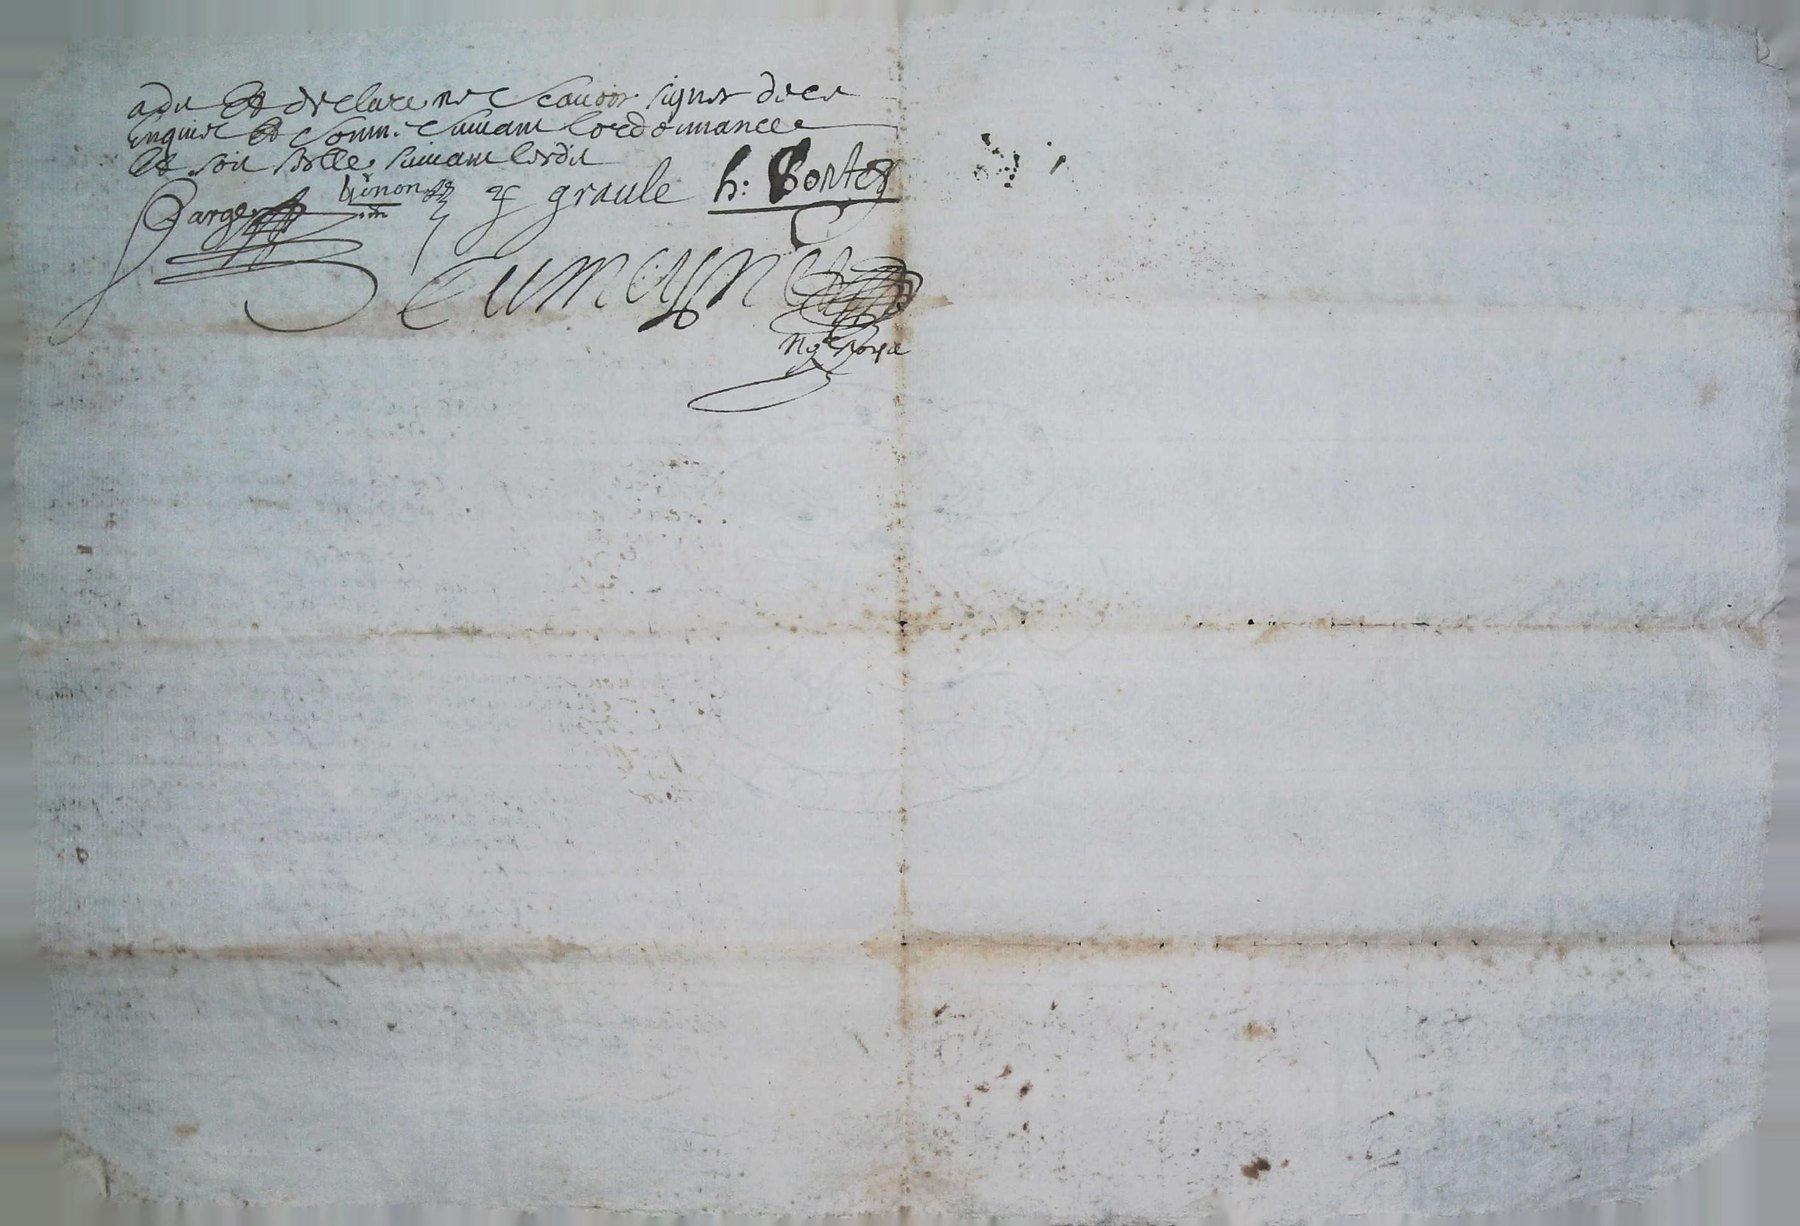 a dit et declare ne scavoir signer de ce
enquis et somm. suivant lordonnance
et soit selle suivant ledit
Barge ginon graule h: Bontes
Not. Royal